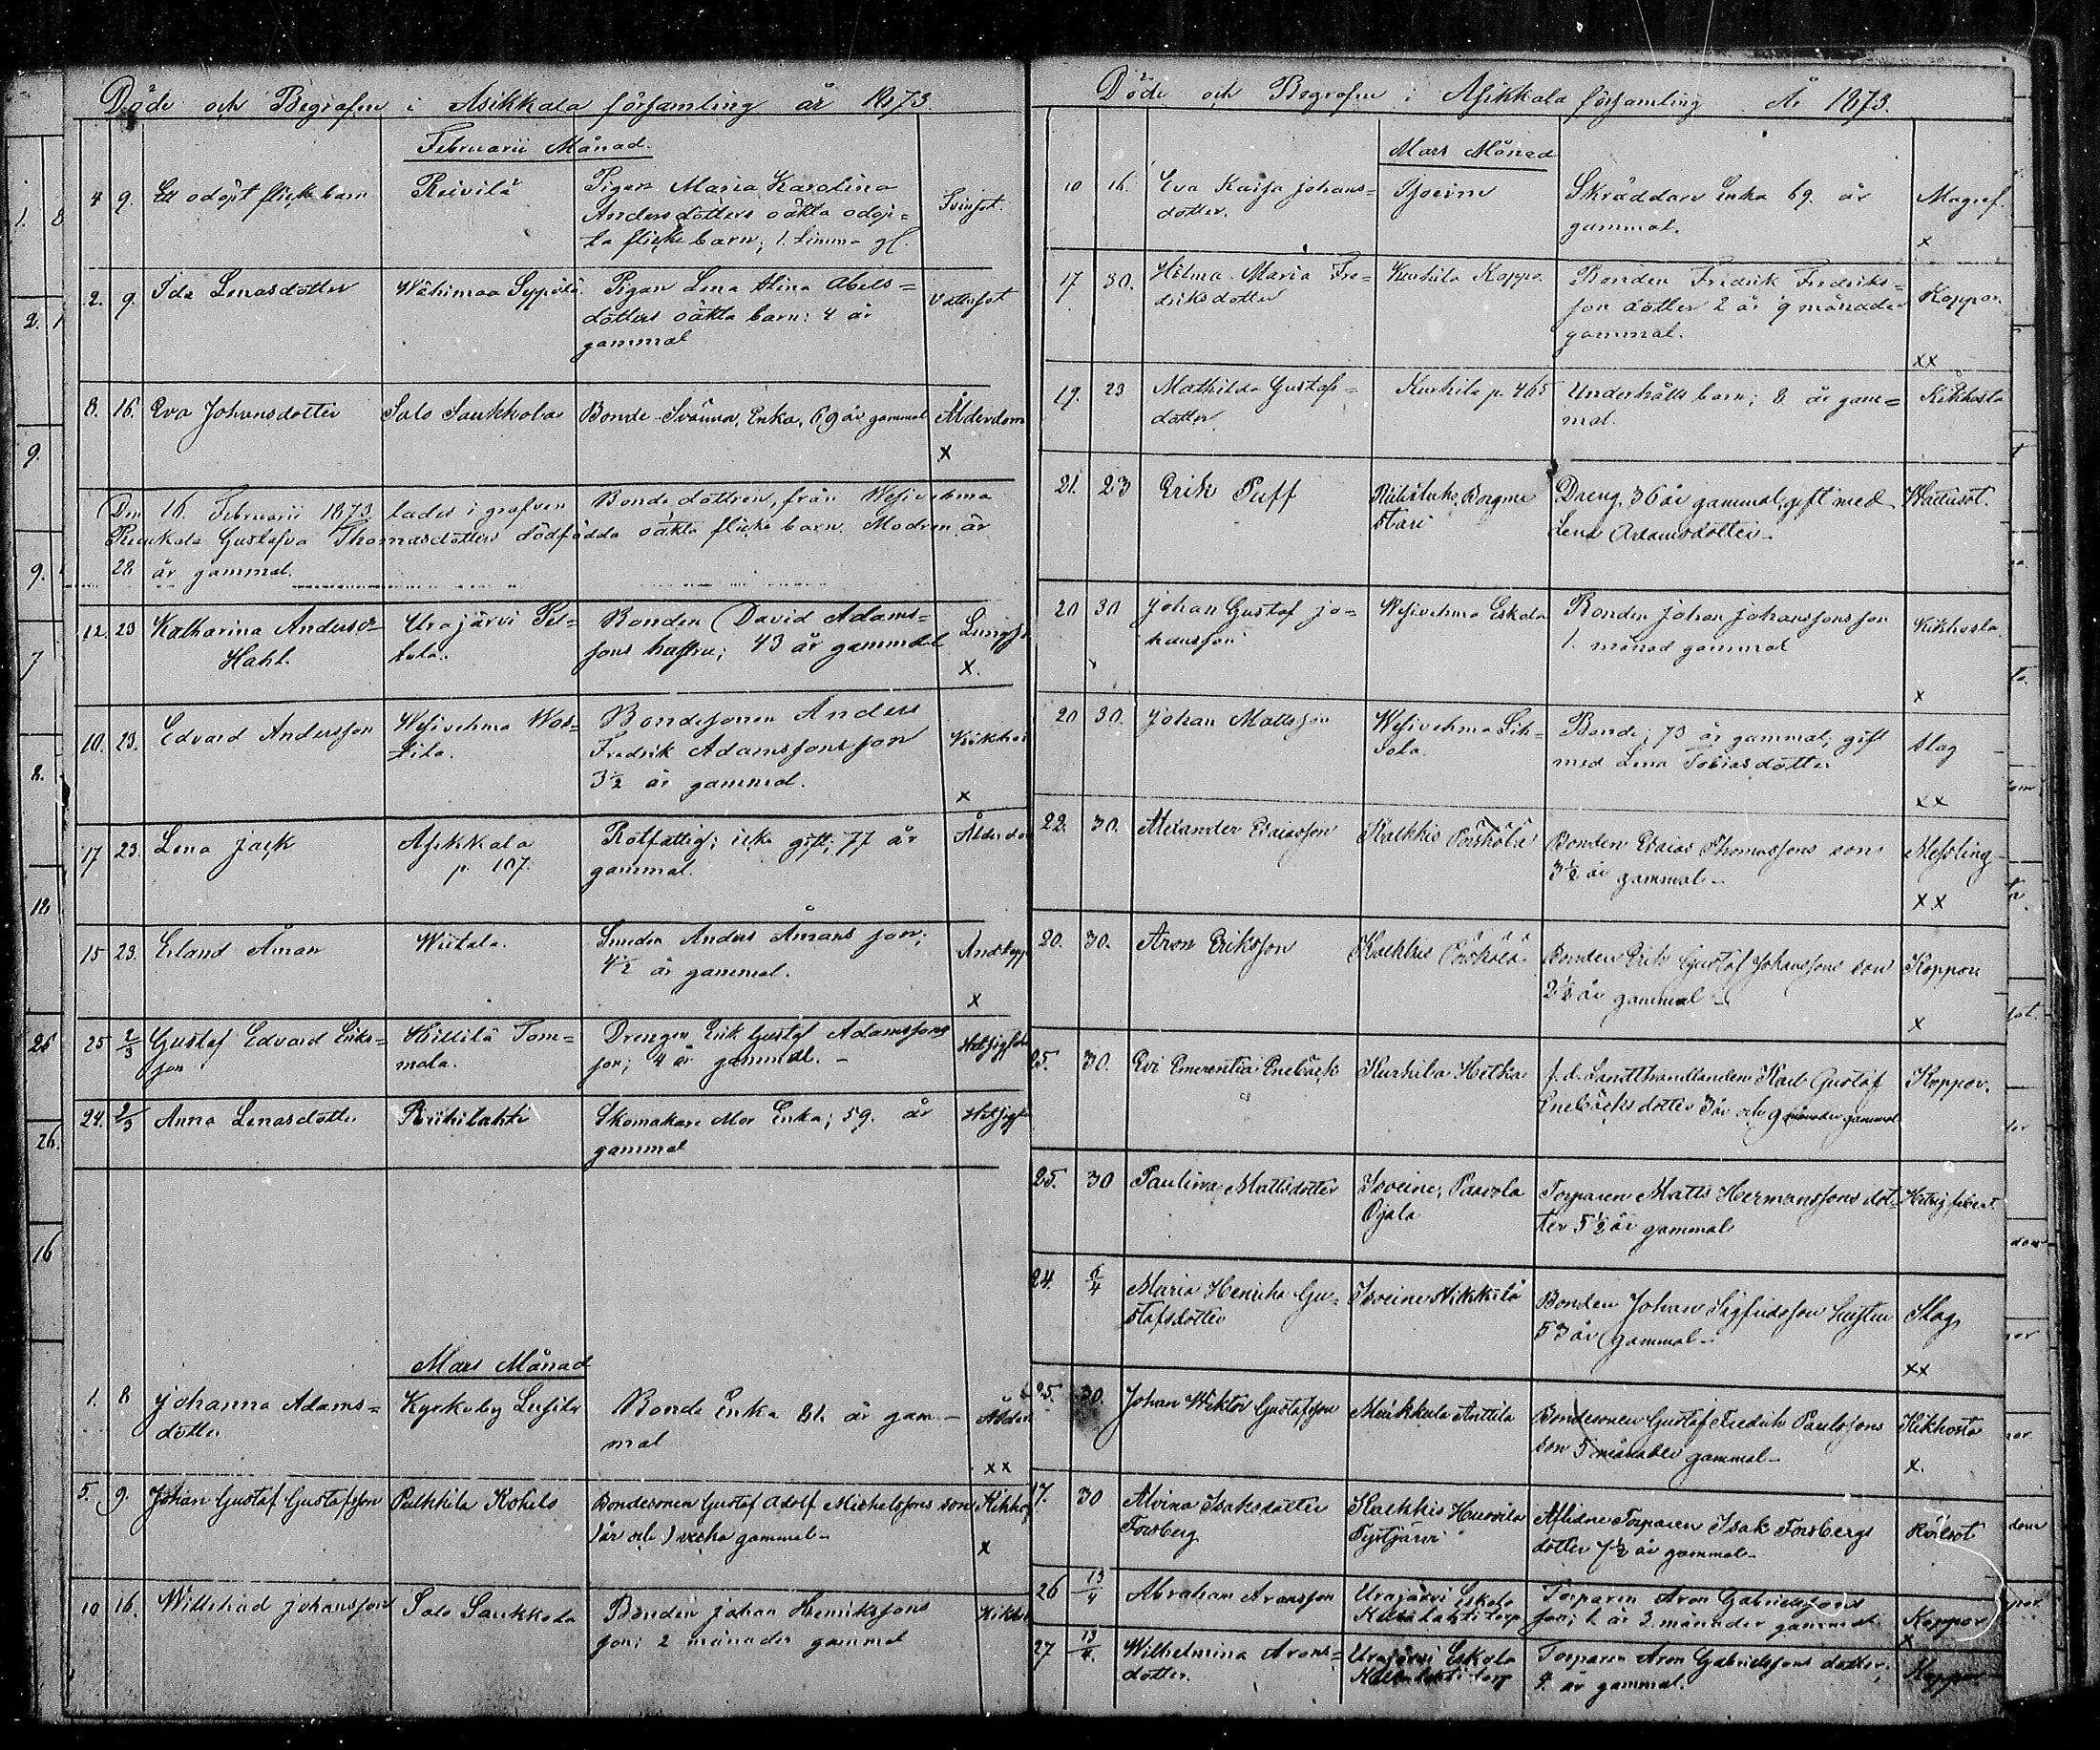 Döde och Begrafne i Asikkala församling år 1873.
Februarii Månad.
4 9. Ett odöpt flickebarn Reivilä Pigan Maria Karolina
Andersdotters oäkta odöp=
ta flickebarn; 1. timma gl.
2. 9. Ida Lenasdotter Wähimaa Seppälä. Pigan Lena Alina Abels= Vattusot
dotters oäkta barn: 4 år
gammal
8. 16. Eva Johansdotter Salo Saukkola Bonde Enka, 69 år gammal Ålderdom
x
Den 16 Februarii 1873 lades i grafven Bonde dottren, från Wesivehma
Gustafva Thomasdotters dödfödda oäkta flickebarn. Modren är
28 år gammal.
12. 23 Katharina Anders d= Urajärvi Pel= Bonden David Adams=
Hahl. tola. sons hustru; 43 år gammal
x.
10. 23. Edvard Andersson Wesivehma Bondesonen Anders Kikhos
Fredrik Adamssons son
3½ år gammal.
x
17 23. Lena Jack Asikkala Rotfattig; icke gift; 77 år Ålderdo
p. 107. gammal.
15 23. Erland Åman Wiitala. Smeden Anders Åmans son;
4½ år gammal.
x
25 2/3 Gustaf Edvard Eriks= Hillilä Tom= Drengen Erik Gustaf Adamssons
son mola. son; 4 år gammal. -
24. 2/3 Anna Lenasdotter Riihilahti Skomakare Mor Enka; 59. år
gammal
Mars Månad
1. 8 Johanna Adams= Kyrkoby Bonde Enka 81. år gam- Ålder
dotter mal
xx
5. 9. Johan Gustaf Gustafsson Pulkkila Kokels Bondesonen Gustaf Adolf Michelssons son Kikho
1 år och 1 vecka gammal-
x
10 16. Willehad Johansson Salo Saukkola Bonden Johan Henrikssons Kikho
son; 2 månader gammal
Döde och Begrafne i Asikkala församling År 1873.
Mars Månad
10 16. Eva Kaisa Johans= Skräddare Enka 69. år Magref.
dotter. gammal.
x
17 30. Hilma Maria Fre= Kurhila Koppo. Bonden Fredrik Fredriks= Koppor.
driksdotter son dotter 2 år 9 månader
gammal.
xx
19. 23 Mathilda Gustafs= Kurhila p. 465 Underhålls barn; 8. år gam= Kikhosta
dotter mal.
21. 23 Erik Puff Dreng, 36 år gammal, gift med Wattusot.
Lena Adamsdotter-
20 30 Johan Gustaf Jo= Wesivehma Eskola Bonden Johan Johanssons son Kikhosta.
hansson 1. månad gammal
x
20 30. Johan Mattsson Wesivehma Bonde; 73 år gammal; gift Slag
med Lena Tobiasdotter
xx
22. 30. Alexander Esaiasson Kalkkis Pörhölä Bonden Esaias Thomassons son Messling-
3½ år gammal-
xx
20. 30. Aron Eriksson Kalkkis Pörhölä Bonden Erik Gustaf Johanssons son Koppor
2½ år gammal-
x
25. 30. Evi Emerentia Enebäck Kurhila Hetka f.d. Landthandlanden Karl Gustaf Koppor.
Enebäcks dotter 3 år och 9 månader gammal
25. 30 Paulina Mattsdotter Isoeine, Paavola Torparen Matts Hermanssons dot-
Ojala ter 5½ år gammal
24. 6/4 Maria Henrika Gu= Isoeine Nikkilä Bonden Johan Sigfridsson Hustru Slag
stafsdotter 53 år gammal-
xx
25. 30. Johan Wiktor Gustafsson Anttila Bondesonen Gustaf Fredrik Paulssons Kikhosta
son 5 månader gammal-
x.
17. 30 Alvina Isaksdotter Kalkkis Aflidne Torparen Isak Forsbergs Rödsot
Forsberg dotter 7½ år gammal-
26 13/4 Abraham Aronsson Urajärvi Eskola Torparen Aron Gabrielssons
torp son; 1 år 3 månader gammal Koppor
x
27 13/4. Wilhelmina Arons= Urajärvi Eskola Torparen Aron Gabrielssons dotter; Koppor
dotter. torp 4. år gammal.